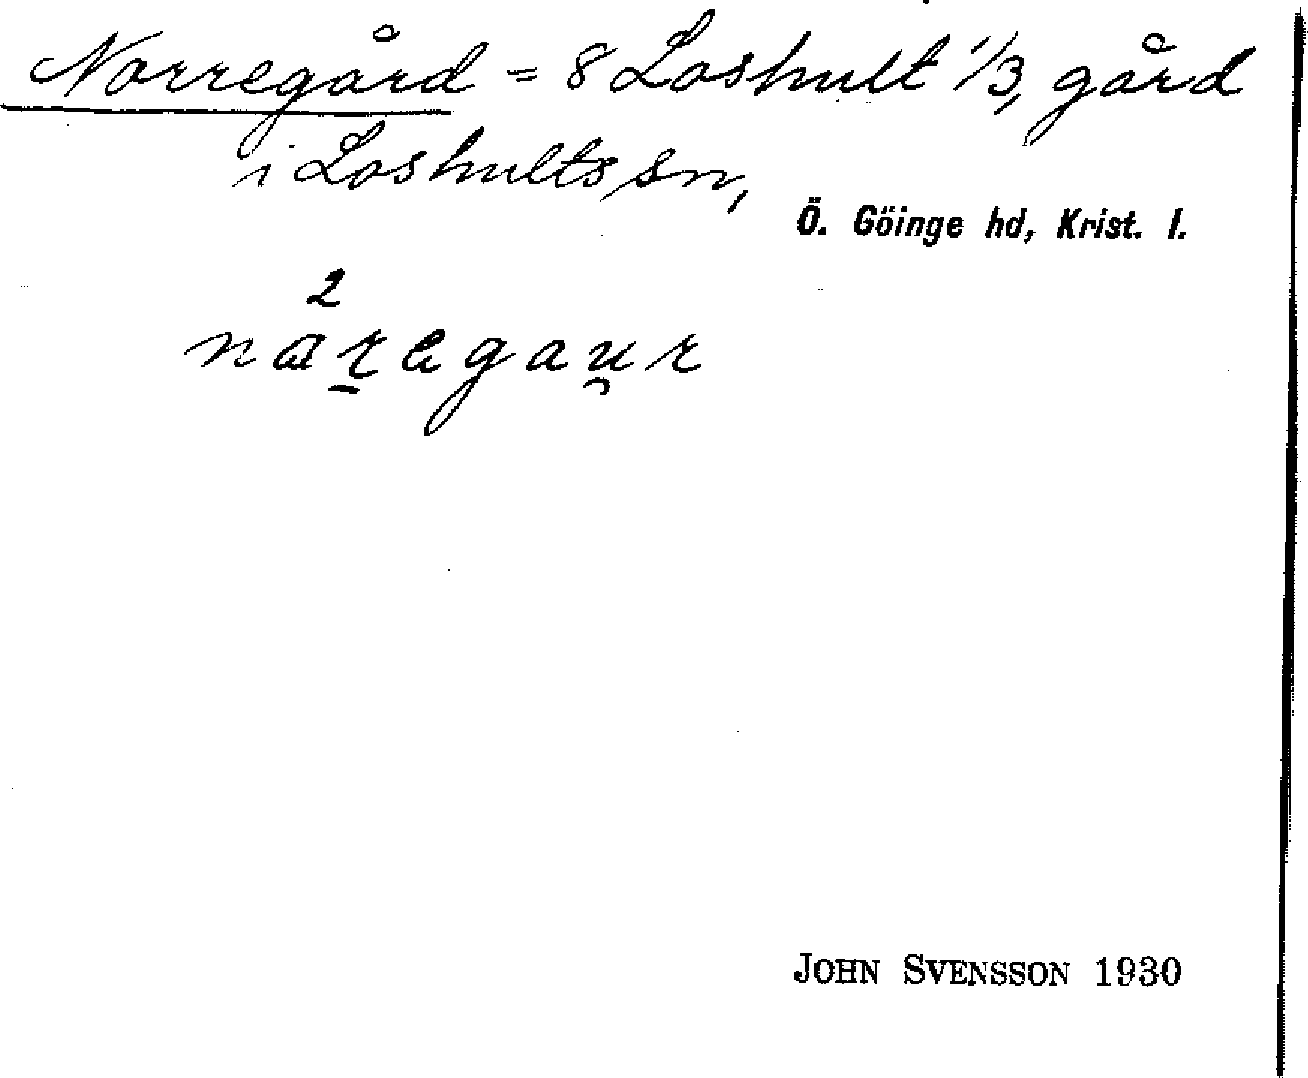 Norregård = 8 Loshult 1/3, gård
i Loshults sn,
Ö. Göinge hd, Krist. l.
2
nar̲egau̯r
JOHN SVENSSON 1930